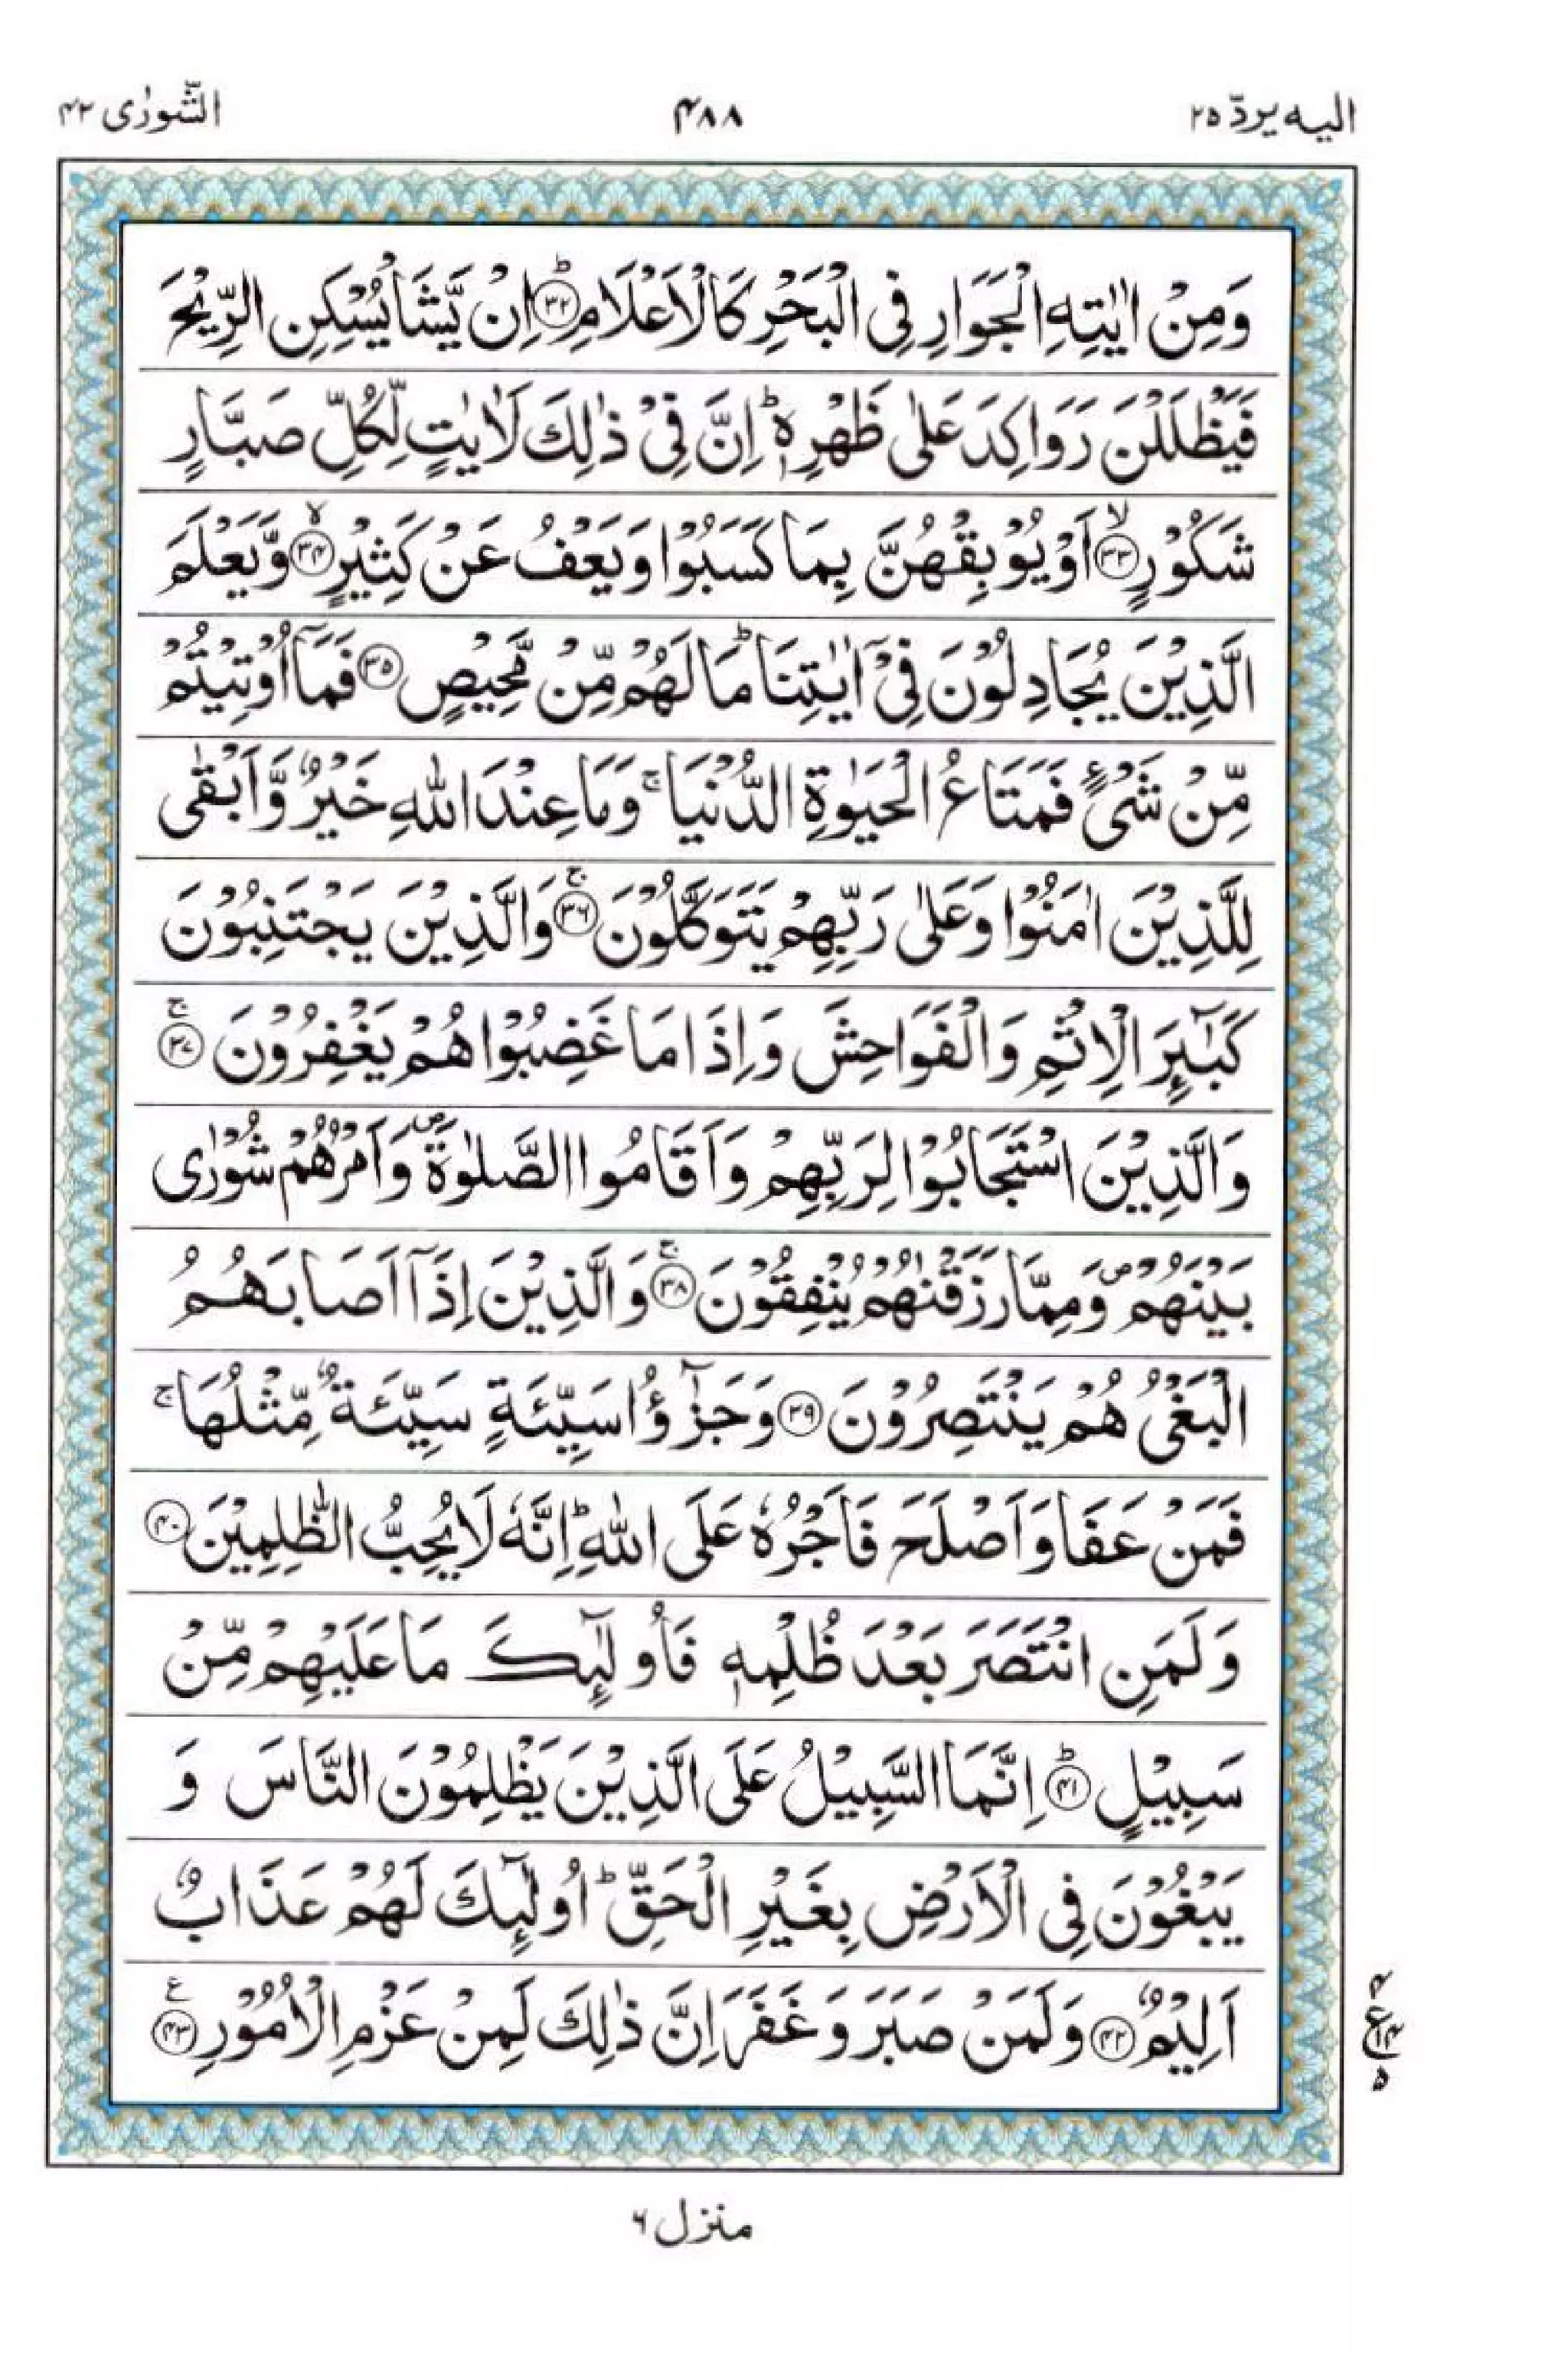 الیه یردّ ۲۵
۴۸۸
الشّورٰی ۴۲
وَمِنْ اٰيٰتِهِ الْجَوَارِ فِى الْبَحْرِ كَالْاَعْلَامِؕ‏ ﴿۳۲﴾ اِنْ يَّشَاْ يُسْكِنِ الرِّيْحَ
فَيَظْلَلْنَ رَوَاكِدَ عَلٰى ظَهْرِهٖؕ اِنَّ فِىْ ذٰلِكَ لَاٰيٰتٍ لِّكُلِّ صَبَّارٍ
شَكُوْرٍۙ‏ ﴿۳۳﴾ اَوْ يُوْبِقْهُنَّ بِمَا كَسَبُوْا وَيَعْفُ عَنْ كَثِيْرٍۙ‏ ﴿۳۴﴾ وَّيَعْلَمَ
الَّذِيْنَ يُجَادِلُوْنَ فِىْۤ اٰيٰتِنَاؕ مَا لَهُمْ مِّنْ مَّحِيْصٍ‏ ﴿۳۵﴾ فَمَاۤ اُوْتِيْتُمْ
مِّنْ شَىْءٍ فَمَتَاعُ الْحَيٰوةِ الدُّنْيَاۚ وَمَا عِنْدَ اللّٰهِ خَيْرٌ وَّاَبْقٰى
لِلَّذِيْنَ اٰمَنُوْا وَعَلٰى رَبِّهِمْ يَتَوَكَّلُوْنَۚ‏ ﴿۳۶﴾ وَالَّذِيْنَ يَجْتَنِبُوْنَ
كَبٰٓئِرَ الْاِثْمِ وَالْفَوَاحِشَ وَاِذَا مَا غَضِبُوْا هُمْ يَغْفِرُوْنَۚ‏ ﴿۳۷﴾
وَالَّذِيْنَ اسْتَجَابُوْا لِرَبِّهِمْ وَاَقَامُوا الصَّلٰوةَ وَاَمْرُهُمْ شُوْرٰى
بَيْنَهُمْ وَمِمَّا رَزَقْنٰهُمْ يُنْفِقُوْنَۚ‏ ﴿۳۸﴾ وَالَّذِيْنَ اِذَاۤ اَصَابَهُمُ
الْبَغْىُ هُمْ يَنْتَصِرُوْنَ‏ ﴿۳۹﴾ وَجَزٰٓؤُا سَيِّئَةٍ سَيِّئَةٌ مِّثْلُهَاۚ
فَمَنْ عَفَا وَاَصْلَحَ فَاَجْرُهٗ عَلَى اللّٰهِؕ اِنَّهٗ لَا يُحِبُّ الظّٰلِمِيْنَ‏ ﴿۴۰﴾
وَلَمَنِ انْتَصَرَ بَعْدَ ظُلْمِهٖ فَاُولٰٓئِكَ مَا عَلَيْهِمْ مِّنْ
سَبِيْلٍؕ‏ ﴿۴۱﴾ اِنَّمَا السَّبِيْلُ عَلَى الَّذِيْنَ يَظْلِمُوْنَ النَّاسَ وَ
يَبْغُوْنَ فِى الْاَرْضِ بِغَيْرِ الْحَقِّؕ اُولٰٓئِكَ لَهُمْ عَذَابٌ
اَلِيْمٌ‏ ﴿۴۲﴾ وَلَمَنْ صَبَرَ وَغَفَرَ اِنَّ ذٰلِكَ لَمِنْ عَزْمِ الْاُمُوْرِ ﴿۴۳﴾ ع
۴
ع ۱۴
۵
منزل ۶